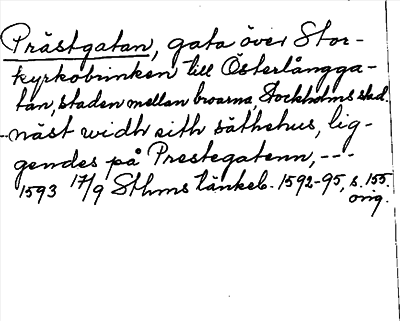 Prästgatan, gata över Stor-
kyrkobrinken till Österlångga-
tan, staden mellan broarna, Stockholms stad.
--näst widh sith säthehus, lig-
gendes på Prestegatenn,---
1593 17/9 Sthms tänkeb. 1592-95, s. 155.
orig.